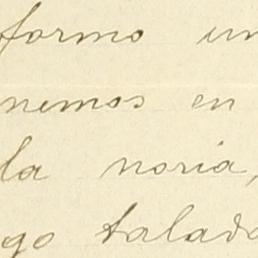 formo un
nemos en
la noria,
go talad